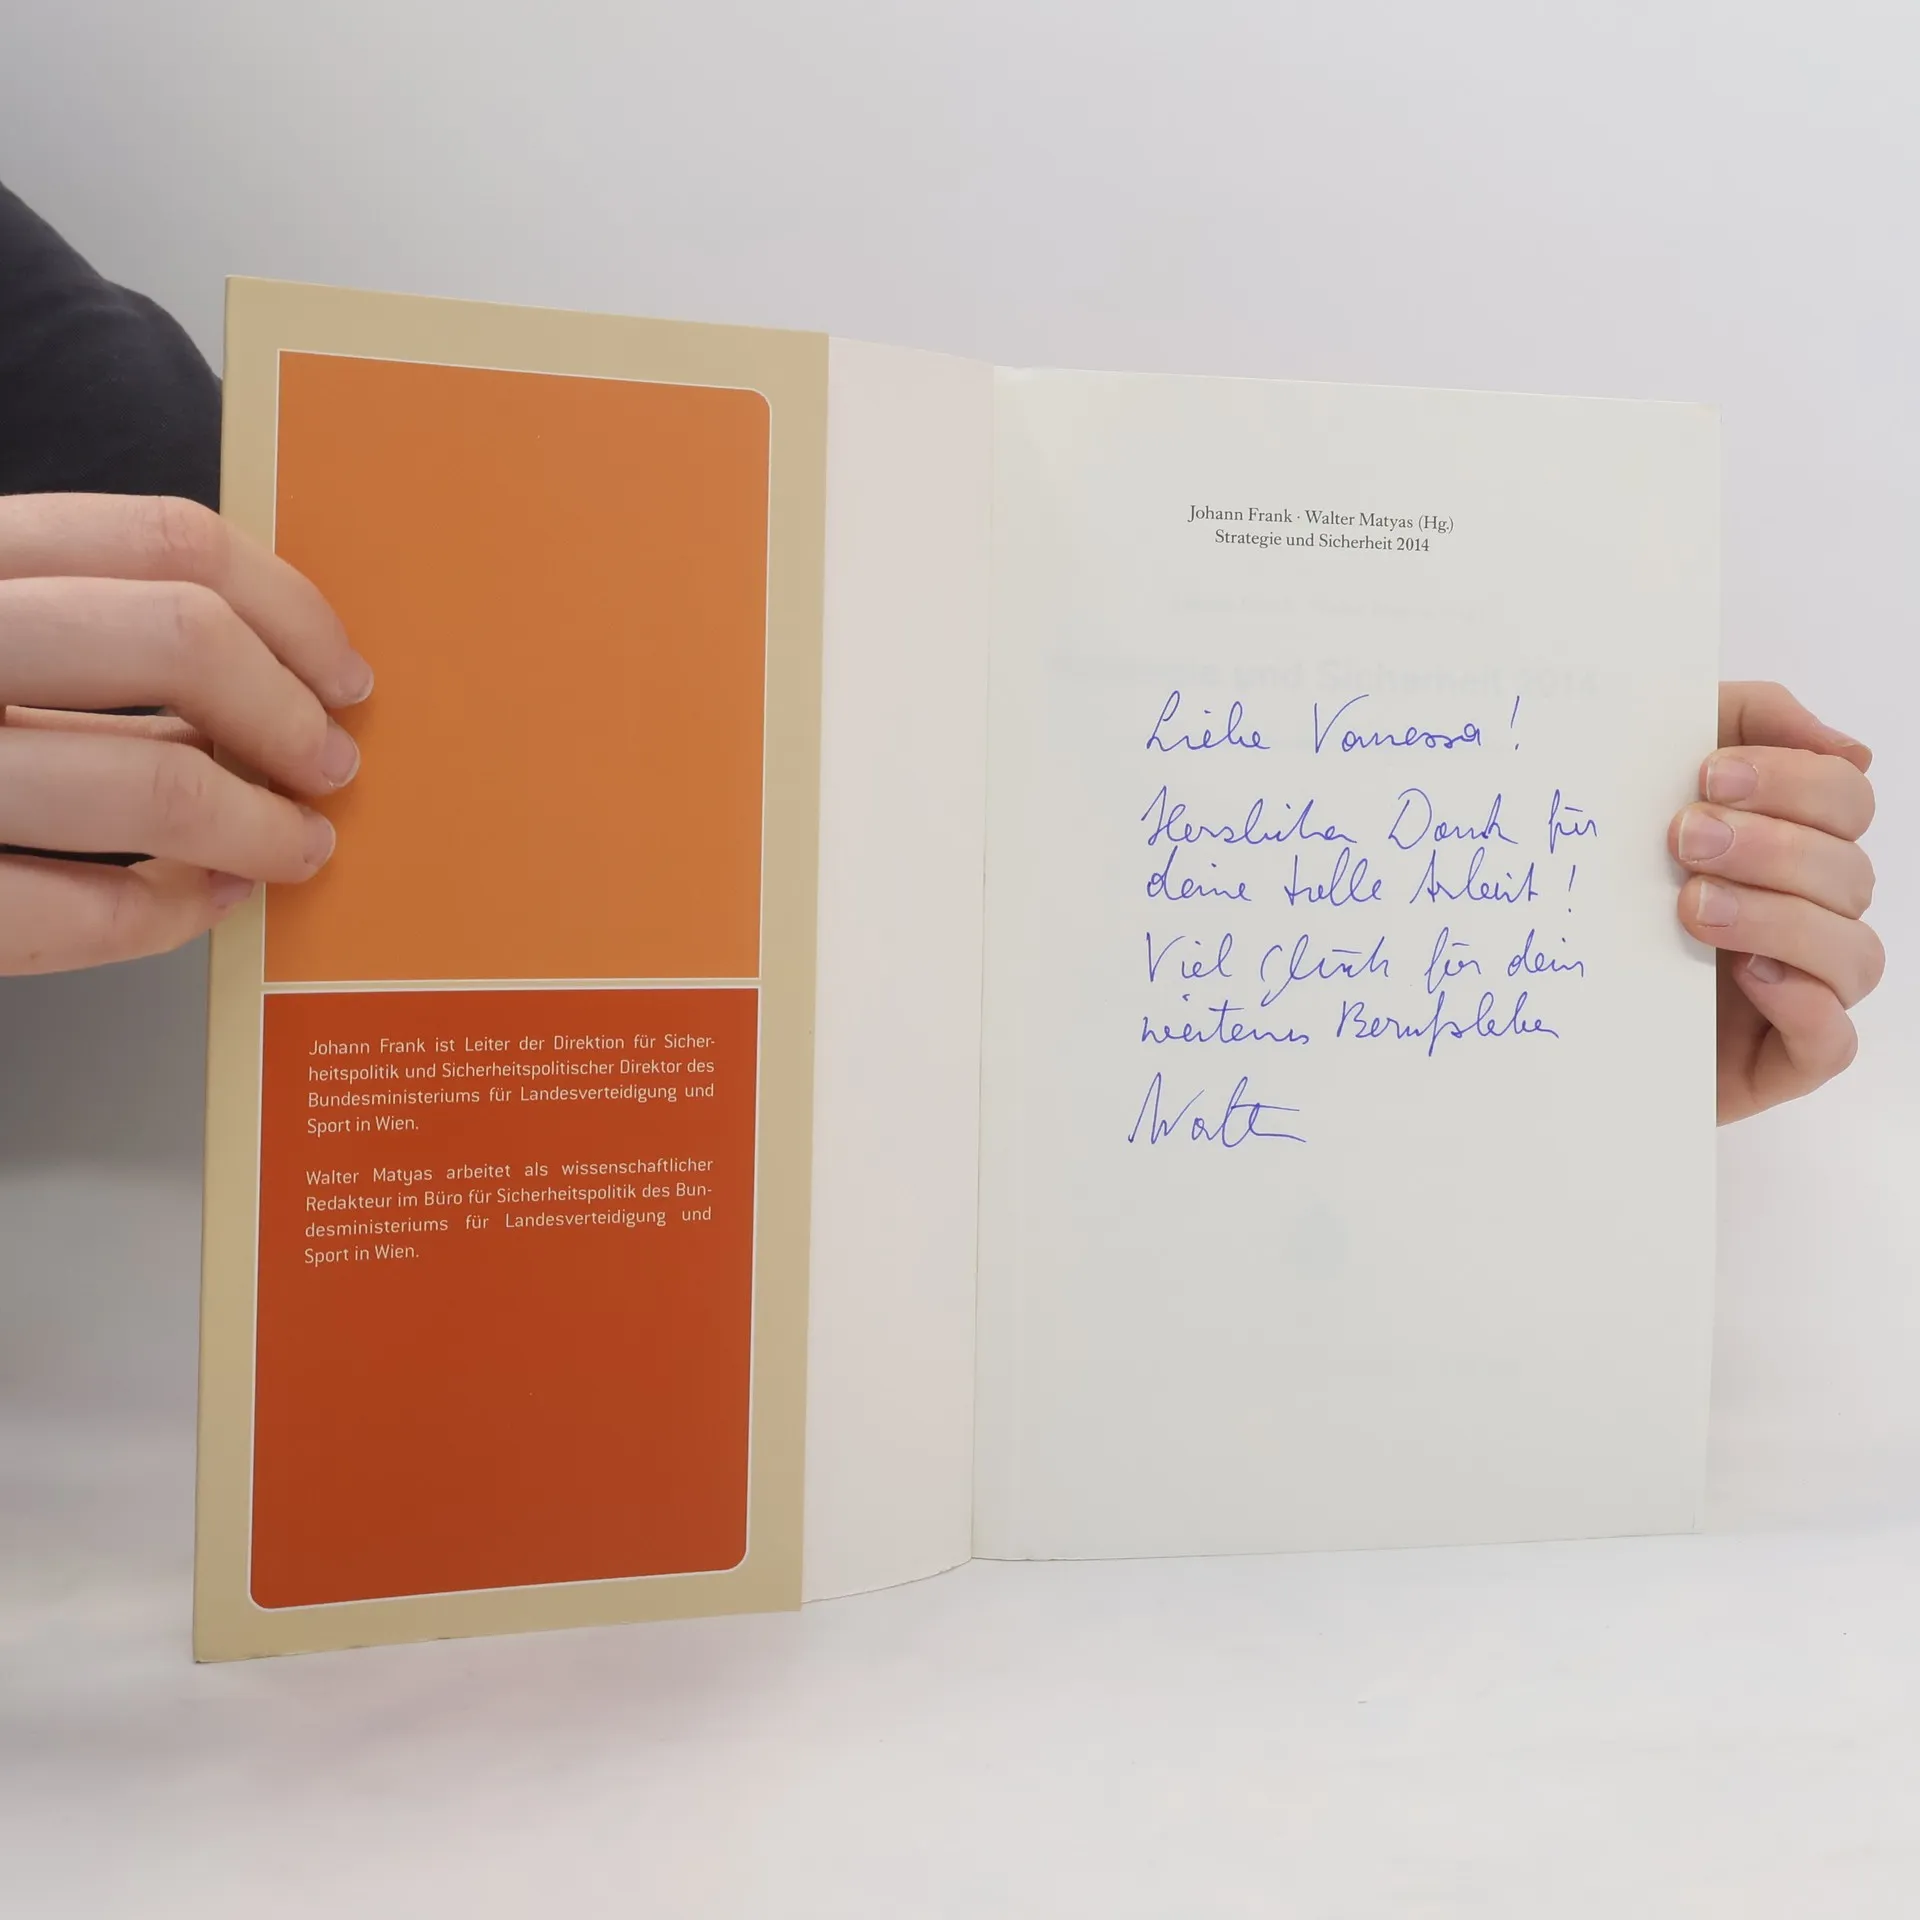 Johann Frank ist Leiter der Direktion für Sicher-
heitspolitik und Sicherheitspolitischer Direktor des
Bundesministeriums für Landesverteidigung und
Sport in Wien.
Walter Matyas arbeitet als wissenschaftlicher
Redakteur im Büro für Sicherheitspolitik des Bun-
desministeriums für Landesverteidigung und
Sport in Wien.
Johann Frank · Walter Matyas (Hg.)
Strategie und Sicherheit 2014
Liebe Vanessa!
Herzlichen Dank für
deine tolle Arbeit!
Viel Glück für dein
weiteres Berufsleben
Walter